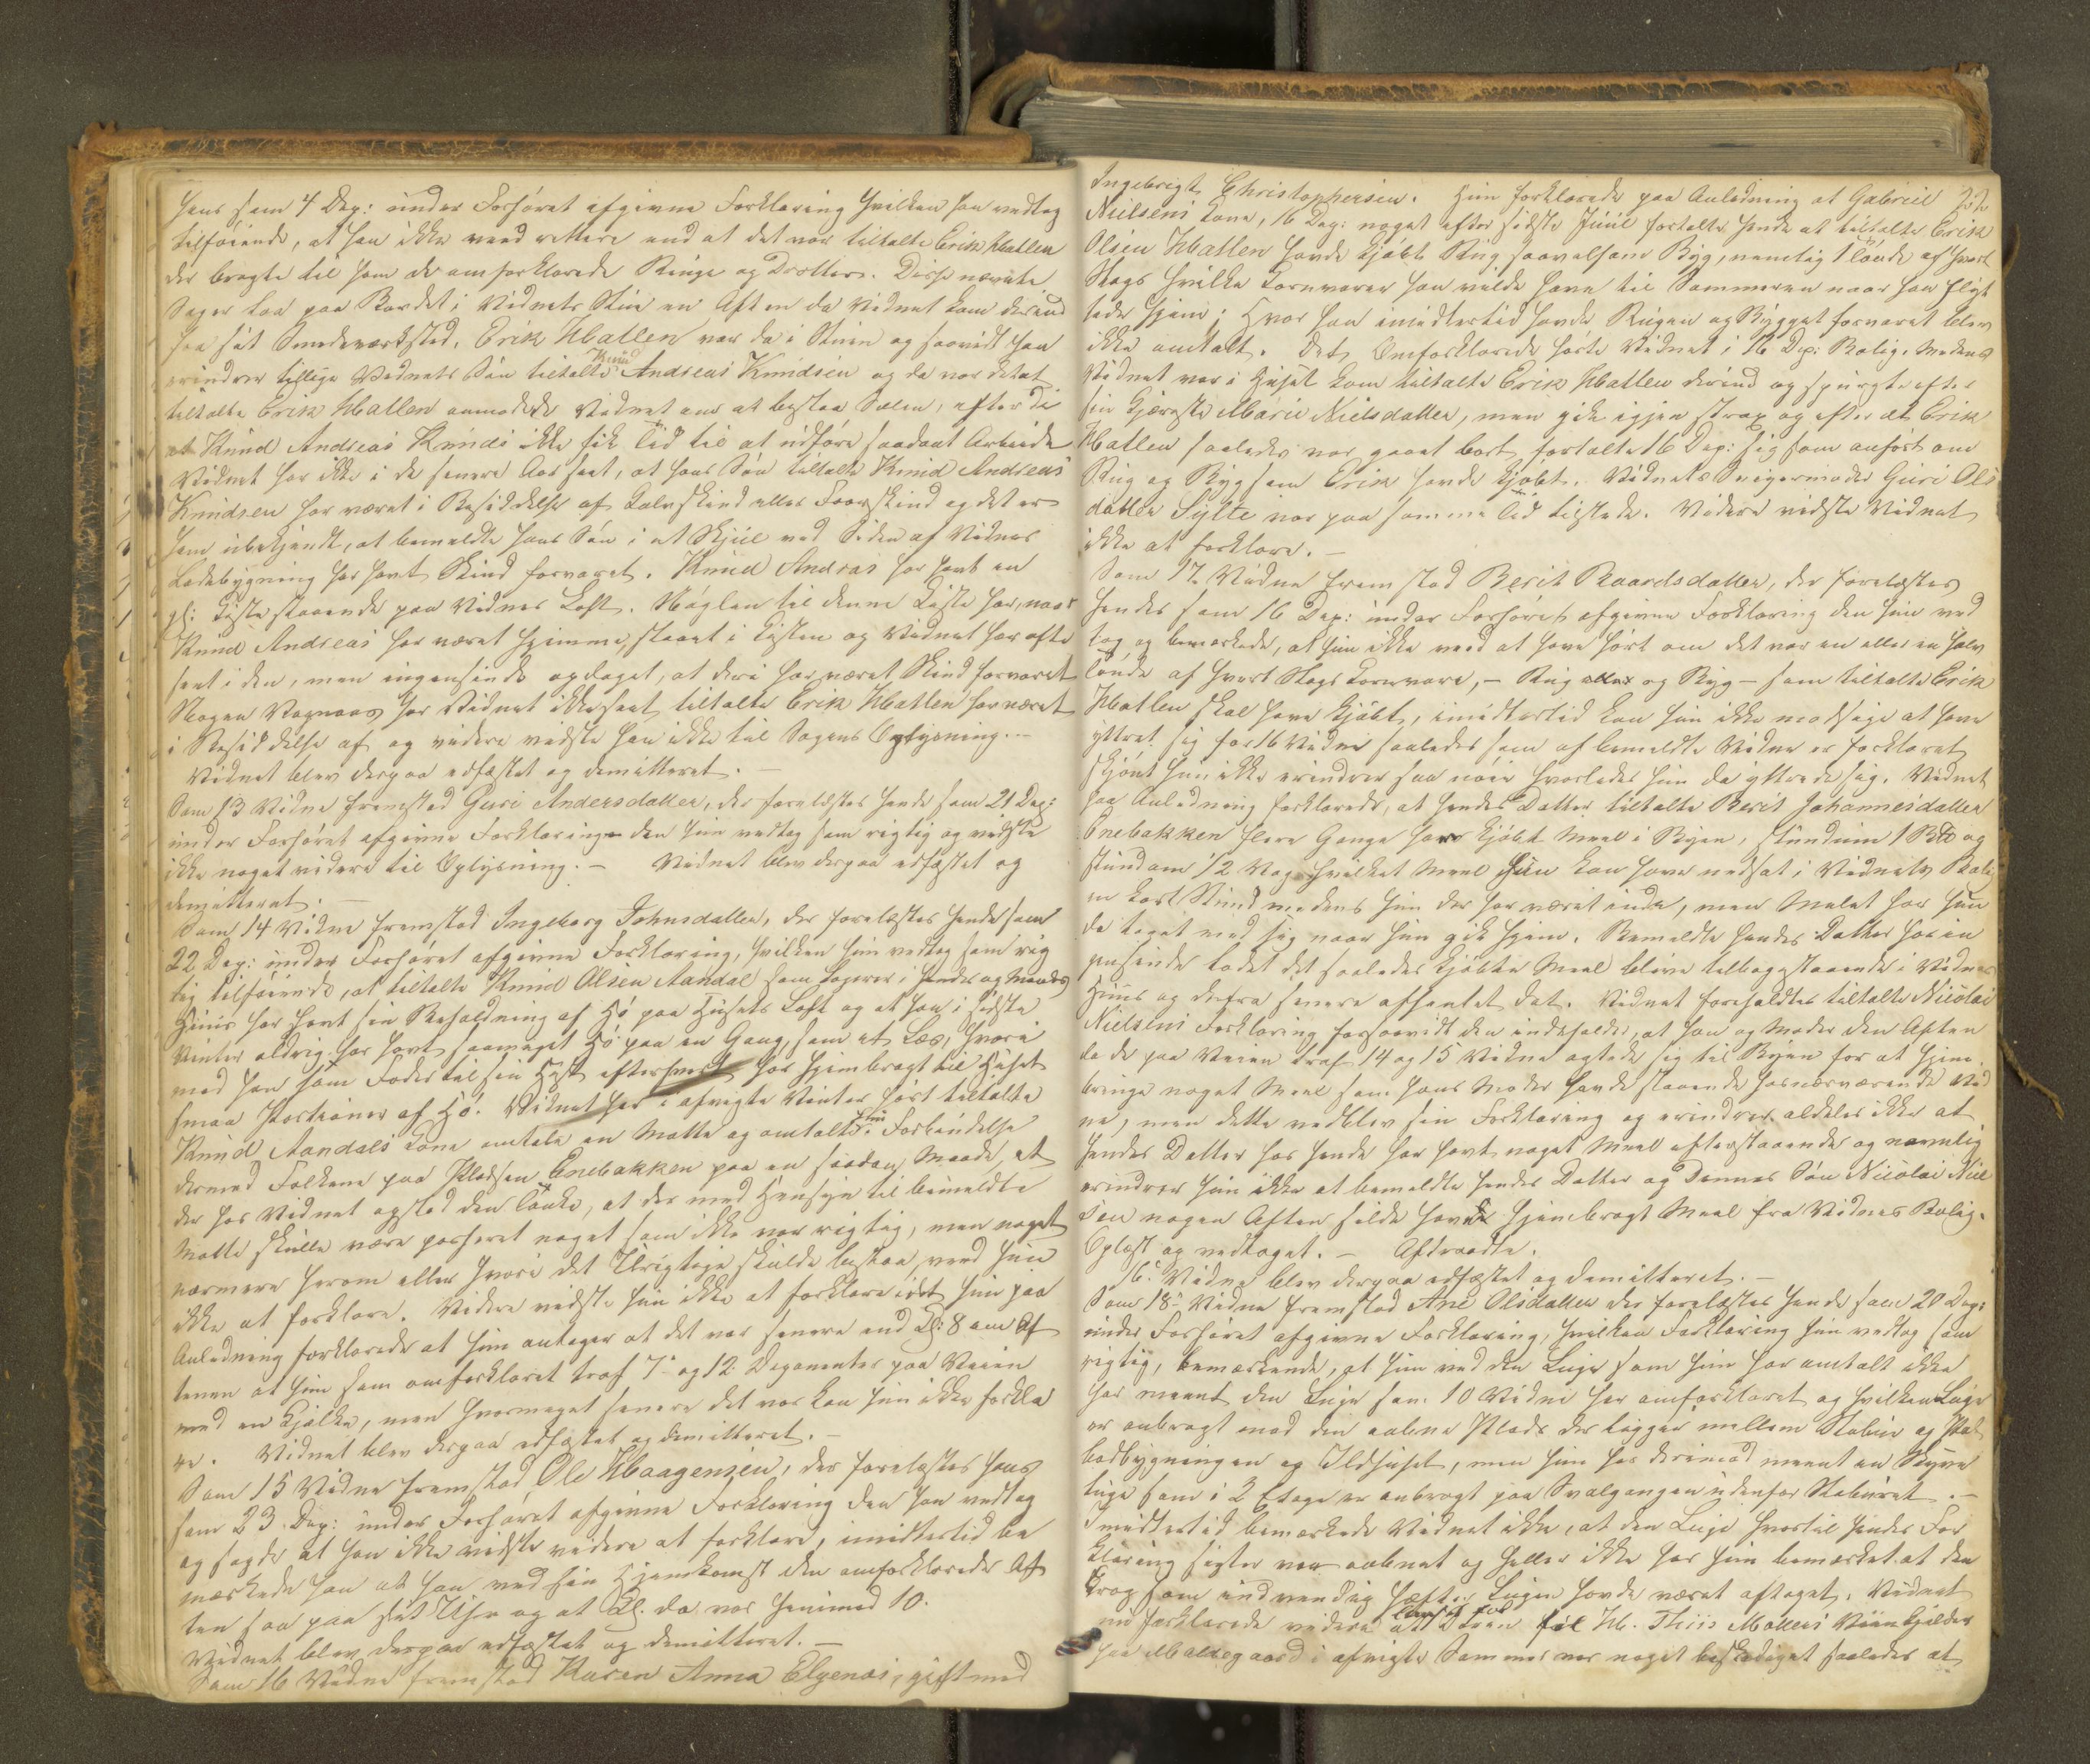 hans som 4 Dep: under Forhøret afgivne Forklaring hvilken han vedtog
tilføiende, at han ikke veed rettere end at det var tiltalte Erik Hatlen
der bragte til ham de omforklarede Ringe og Dratter. Disse nævnte
Sager laa paa Bordet i Vidnets Stue en Aften da Vidnet kom derind
fra sit Smedeværksted. Erik Hatlen var da i Stuen og saavidt han
erindrer tillige Vidnets Søn tiltalte Knud Andreas Knudsen og da var det at
tiltalte Erik Hatlen anmodede Vidnet om at beslaa Sælen, efterdi
at Knud Andreas Knuds ikke fik Tid til at udføre saadant Arbeide
Vidnet har ikke i de senere Aar seet, at hans Søn tiltalte Knud Andreas
Knudsen har været i Besiddelse af Kalvskind eller Faarskind og det er
ham ubekjendt, at bemeldte hans Søn i et Skjul ved Siden af Vidnes
Ladebygning har havt Skind forvaret. Knud Andreas har havt en
gl: Kiste staaende paa Vidnes Loft. Nøglen til denne Kiste har, naar
Knud Andreas har været hjemme, staaet i Kisten og Vidnet har ofte
seet i den, men ingensinde opdaget, at deri har været Skind forvaret
Nogen Vognaas har Vidnet ikke seet tiltalte Erik Hatlen har været
i Besiddelse af og videre vidste han ikke til Sagens Oplysning. –
Vidnet blev derpaa edfæstet og demitteret. –
Som 13 Vidne fremstod Guri Andersdatter, der forelæstes hende som 21 Dep:
under Forhøret afgivne Forklaring den hun vedtog som rigtig og vidste
ikke noget videre til Oplysning. – Vidnet blev derpaa edfæstet og
demitteret. –
Som 14 Vidne fremstod Ingeborg Johnsdatter, der forelæstes hende som
22 Dep: under Forhøret afgivne Forklaring, hvilken hun vedtog som rig
tig tilføiende, at tiltalte Knud Olsen Aandal som logerer i hendes og Mands
Huus har havt sin Beholdning af Hø paa Husets Loft og at han i sidste
Vinter aldrig har havt saameget Hø paa en Gang, som et Læs, hvori
mod han som Foder til sin Hest efterhvert har hjembragt til Huset
smaa Portioner af Hø. Vidnet har i afvigte Vinter hørt tiltalte
Knud Aandals Kone omtale en Matte og omtalte hun i Forbindelse
dermed Folkene paa Pladsen Enebakken paa en saadan Maade, at
der hos Vidnet opstod den Tanke, at der med Hensyn til bemeldte
Matte skulle være passeret noget som ikke var rigtig, men noget
nærmere herom eller hvori det Urigtige skulde bestaa, veed hun
ikke at forklare. Videre vidste hun ikke at forklare idet hun paa
Anledning forklarede at hun antager at det var senere end Kl: 8 om Af
tenen at hun som omforklaret traf 7de og 12 Deponenter paa Veien
med en Kjælke, men hvormeget senere det var kan hun ikke forkla
re. Vidnet blev derpaa edfæstet og dimitteret. –
Som 15 Vidne fremstod Ole Haagensen, der forelæstes hans
som 23. Dep: under Forhøret afgivne Forklaring den han vedtog
og sagde at han ikke vidste videre at forklare, imidlertid be
mærkede han at han ved sin Hjemkomst den omforklarede Af
ten saa paa sit Uhr og at Kl. da var henimod 10.
Vidnet blev derpaa edfæstet og demitteret. –
Som 16 Vidne fremstod Karen Anna Elgenæs, gift med
Ingebrigt Christophersen. Hun forklarede paa Anledning at Gabriel 22
Nielsens Kone, 16 Dep: noget efter sidste Juul fortalte hende at tiltalte Erik
Olsen Hatlen havde kjøbt Rug saavelsom Byg, nemlig 1 Tønde af hvert
Slags hvilke Kornvarer han vilde have til Sommeren naar han flyt
tede hjem; Hvor han imidlertid havde Rugen og Bygget forvaret blev
ikke omtalt. Det Omforklarede hørte Vidnet i 16 Dep: Bolig. Medens
Vidnet var i Huset kom tiltalte Erik Hatlen derind og spurgte efter
sin Kjæreste Marie Nielsdatter, men gik igjen strax og efter at Erik
Hatlen saaledes var gaaet bort fortalte 16 Dep: sig som anført om
Rug og Byg som Erik havde kjøbt. Vidnets Svigermoder Guri Ols
datter Sylte var paa samme Tid tilstede. Videre vidste Vidnet
ikke at forklare. –
Som 17. Vidne fremstod Berit Baardsdatter, der forelæstes
hendes som 16 Dep: under Forhøret afgivne Forklaring den hun ved
tog, og bemærkede, at hun ikke veed at have hørt om det var en eller en halv
Tønde af hvert Slags Kornvare, – Rug eller og Byg – som tiltalte Erik
Hatlen skal have kjøbt, imidlertid kan hun ikke modsige at have
yttret sig for 16 Vidne saaledes som af bemeldte Vidne er forklaret
skjønt hun ikke erindrer saa nøie hvorledes hun da yttrede sig. Vidnet
paa Anledning forklarede, at hendes Datter tiltalte Berit Johannesdatter
Enebakken flere Gange har kjøbt Meel i Byen, stundum 1 og
stundom 1/2 Vog hvilket Meel hun kan have nedsat i Vidnets Bolig
en kort Stund medens hun der har været inde, men Melet har hun
da taget med sig naar hun gik hjem. Bemeldte hendes Datter har in
gensinde ladet det saaledes kjøbte Meel blive tilbagestaaende i Vidnes
Huus og derfra senere afhentet det. Vidnet foreholdtes tiltalte Nicolai
Nielsens Forklaring forsaavidt den indeholder, at han og Moder den Aften
da de paa Veien traf 14 og 15 Vidne agtede sig til Byen for at hjem
bringe noget Meel som hans Moder havde staaende hos nærværende Vid
ne, men dette vedblev sin Forklaring og erindrer aldeles ikke at
hendes Datter hos hende har havt noget Meel efterstaaende og navnlig
erindrer hun ikke at bemeldte hendes Datter og Dennes Søn Nicolai Niel
sen nogen Aften silde havde hjembragt Meel fra Vidnes Bolig.
Oplæst og vedtaget. – Aftraadte.
16. Vidne blev derpaa edfæstet og demitteret. –
Som 18de Vidne fremstod Ane Olsdatter der forelæstes hende som 20 Dep:
under Forhøret afgivne Forklaring, hvilken Forklaring hun vedtog som
rigtig, bemærkende, at hun ved den Luge som hun har omtalt ikke
har meent den Luge som 10 Vidne har omforklaret og hvilken Luge
er anbragt mod den aabne Plads der ligger mellem Stabur og
bodbygningen og Ildhuset, men hun har derimod meent en Skyve
luge som i 2 Etage er anbragt paa Svalgangen udenfor Staburet. –
Imidlertid bemærkede Vidnet ikke, at den Luge hvortil hendes For
klaring sigter var aabnet og heller ikke har hun bemærket at den
Krog som indvendig hæfter Lugen havde været aftaget. Vidnet
nu forklarede videre at Døren til H. Thiis Møllers Viinkjelder
paa Moldegaard i afvigte Sommer var noget beskadiget saaledes at